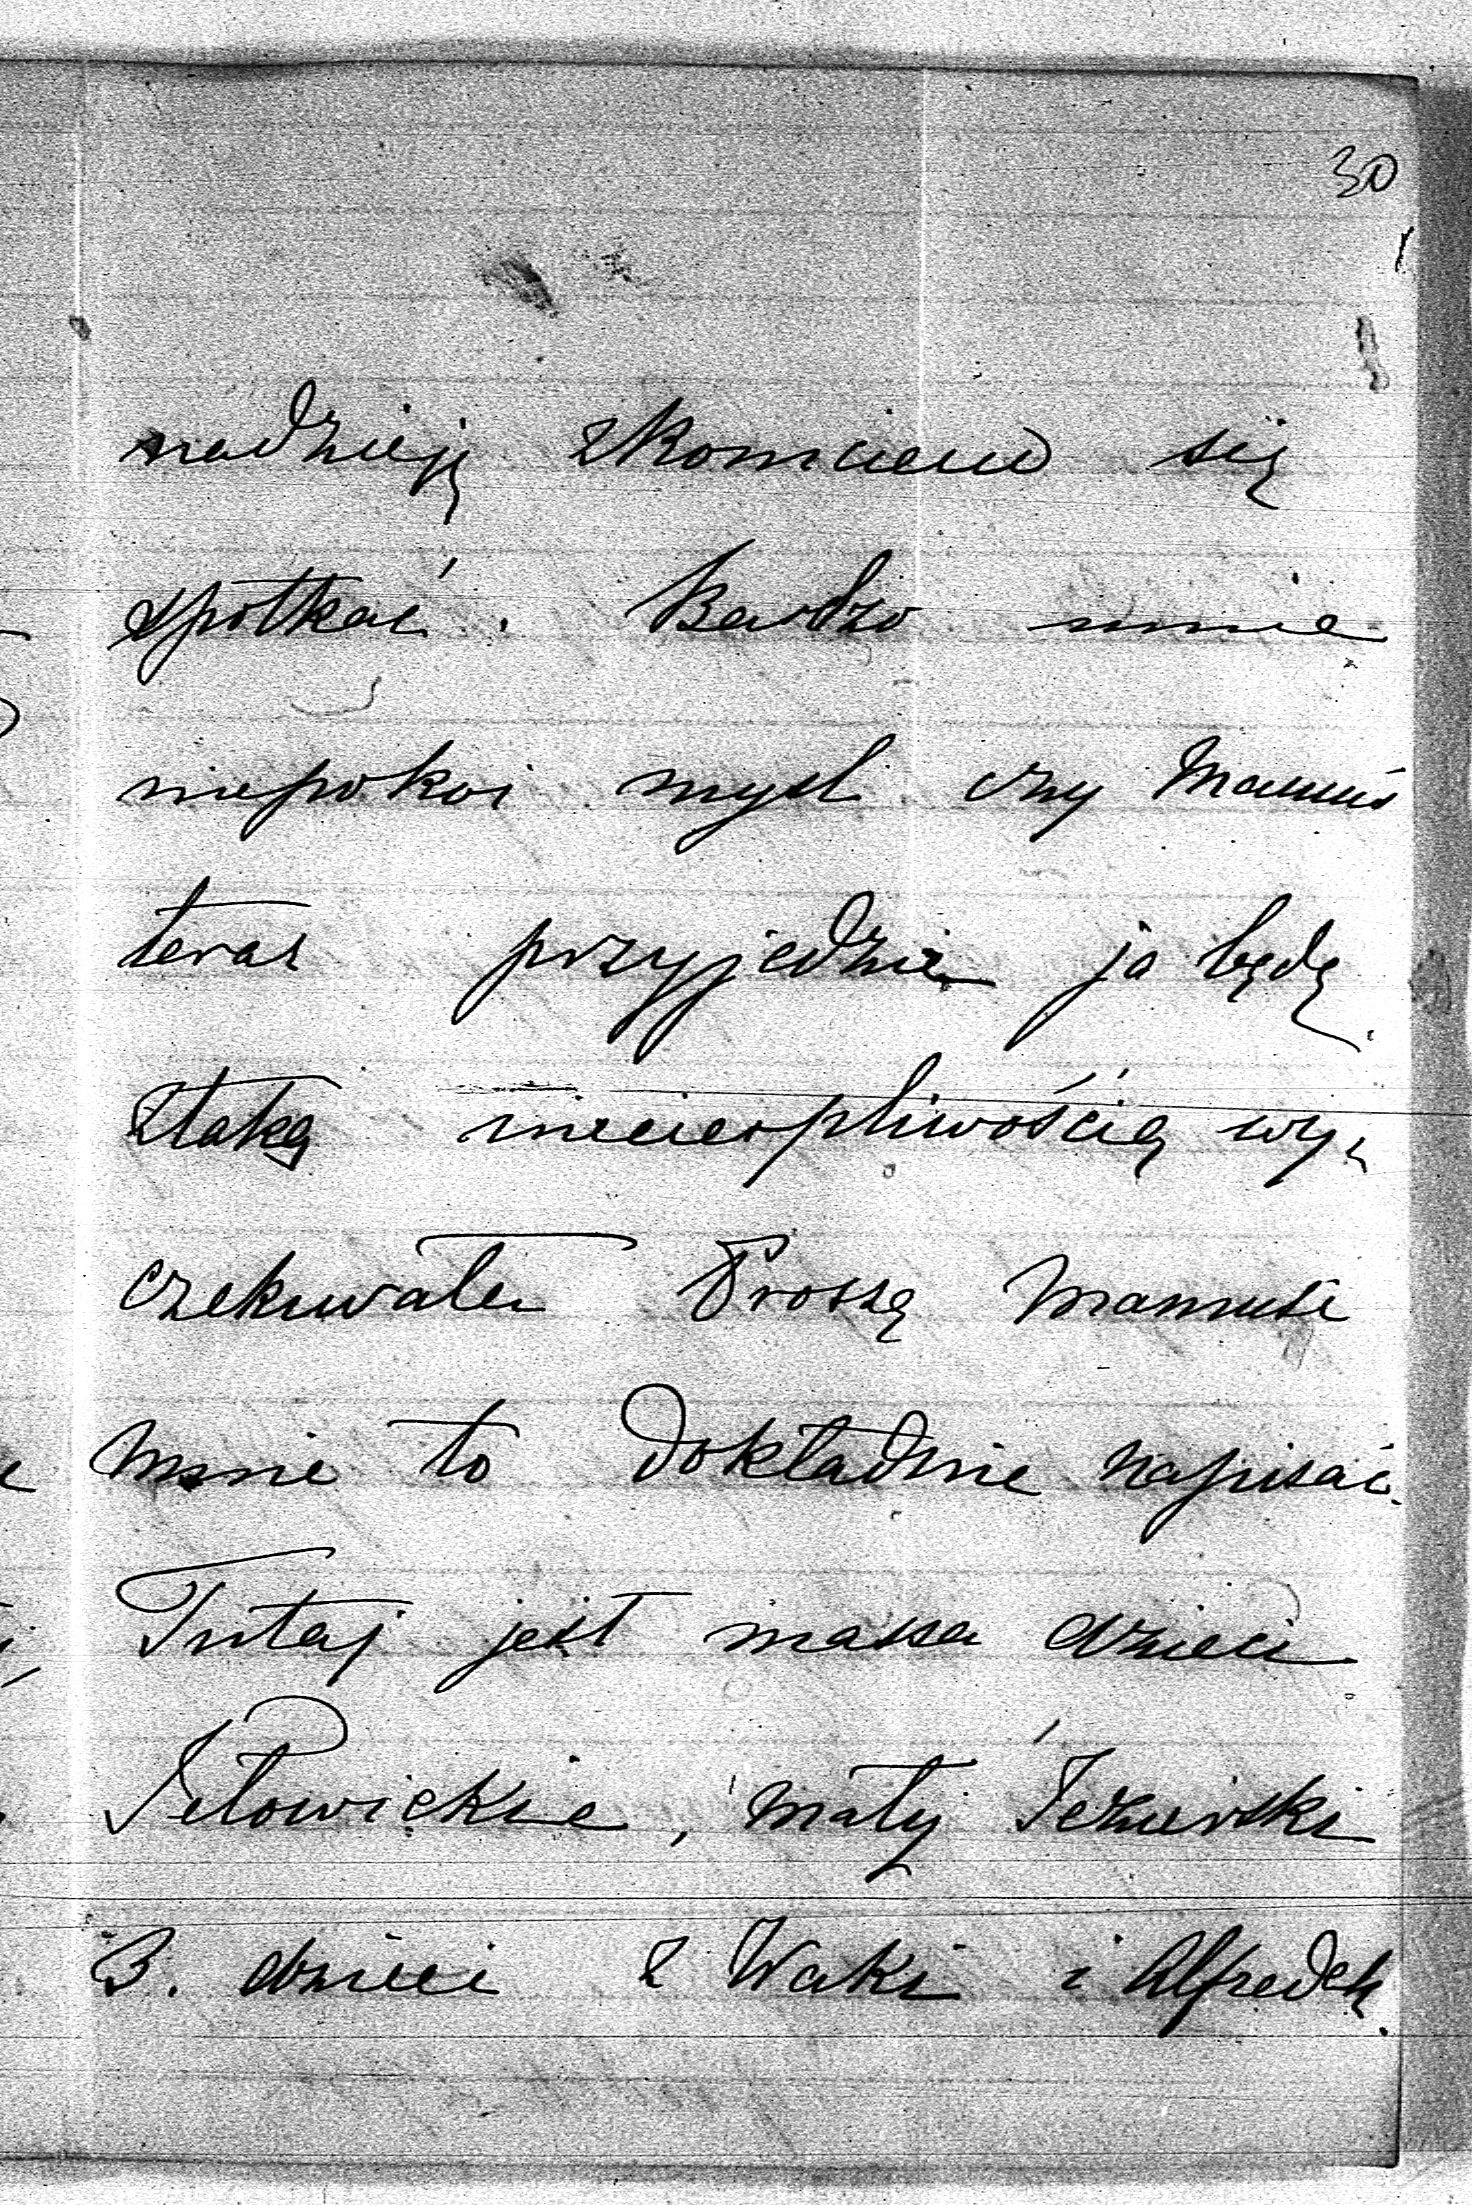 30
nadzieję zkomciem się
spotkać. Bardzo mnie
niepokoi mysl czy Mamuś
teras przyjedzie ja będę
ztaką niecierpliwością wy-
czekiwała Proszą Mamusi
mnie to dokładnie napisać.
Tutaj jest massa dzieci
mały
3. dzieci z Waki i Alfredek.